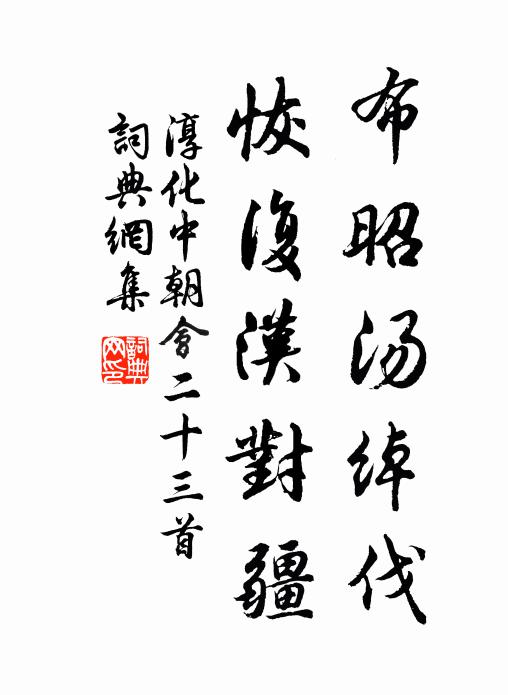 布昭汤綽伐
恢復漢對疆
淳化中朝會二十三首
詞典網集
詞典网印